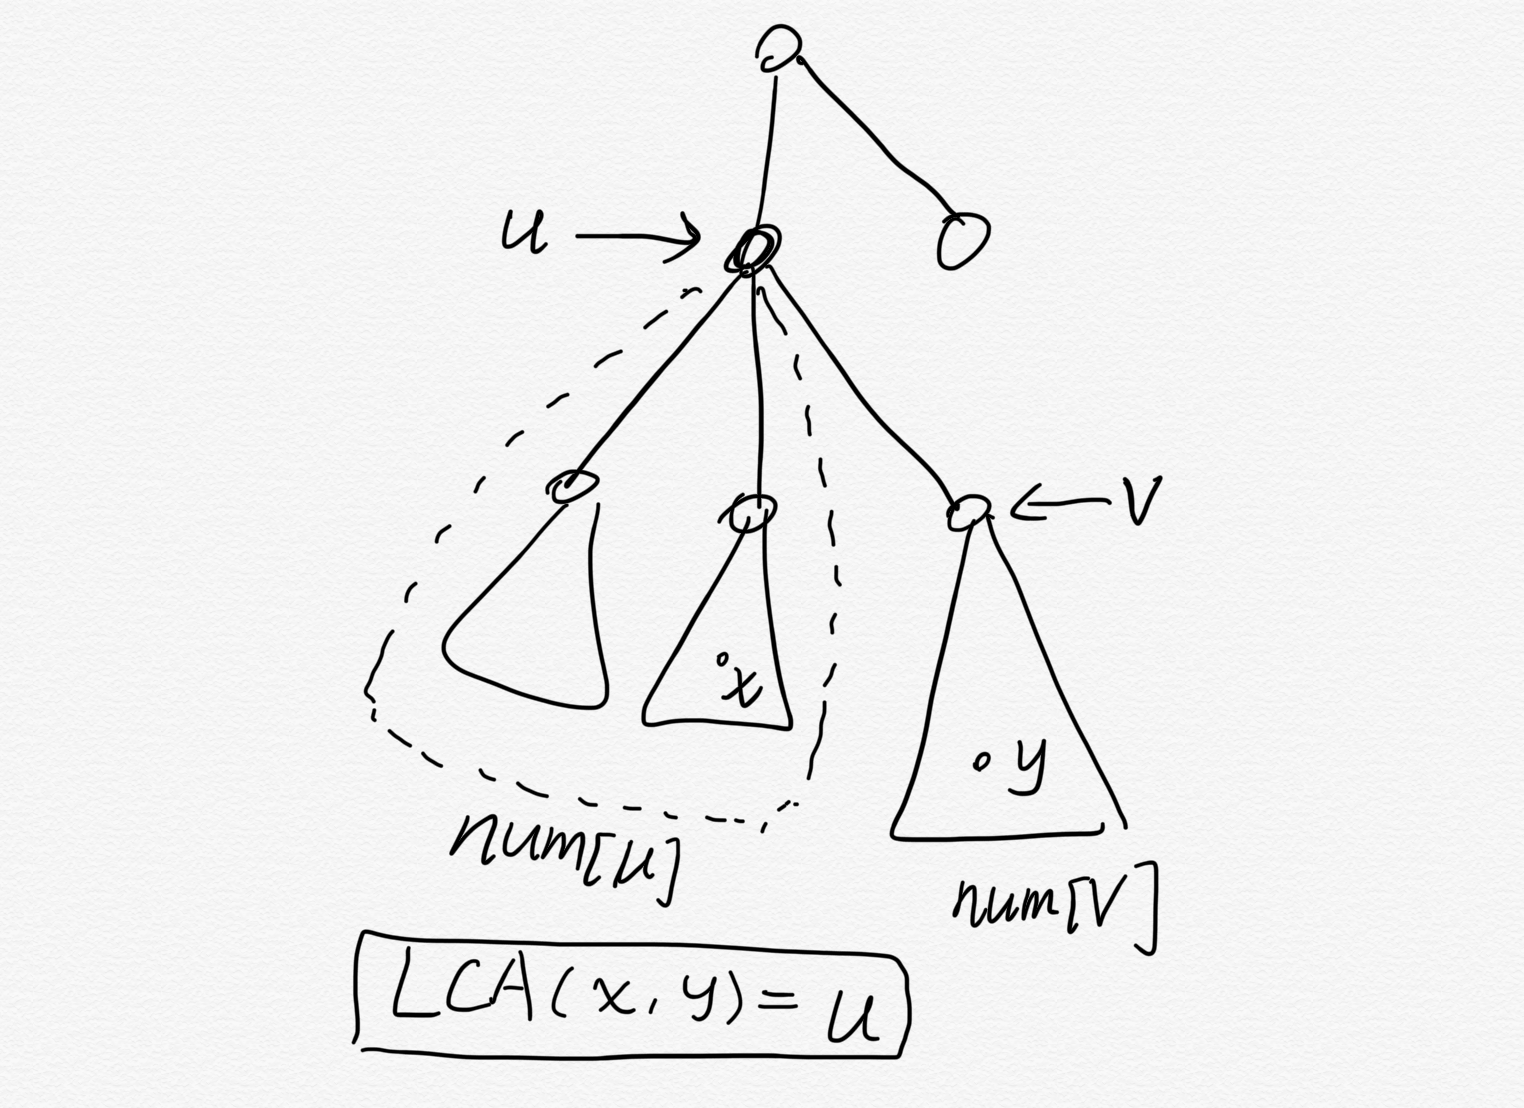 u
V
x
y
num[u]
num[V]
LCA(x,y)=u